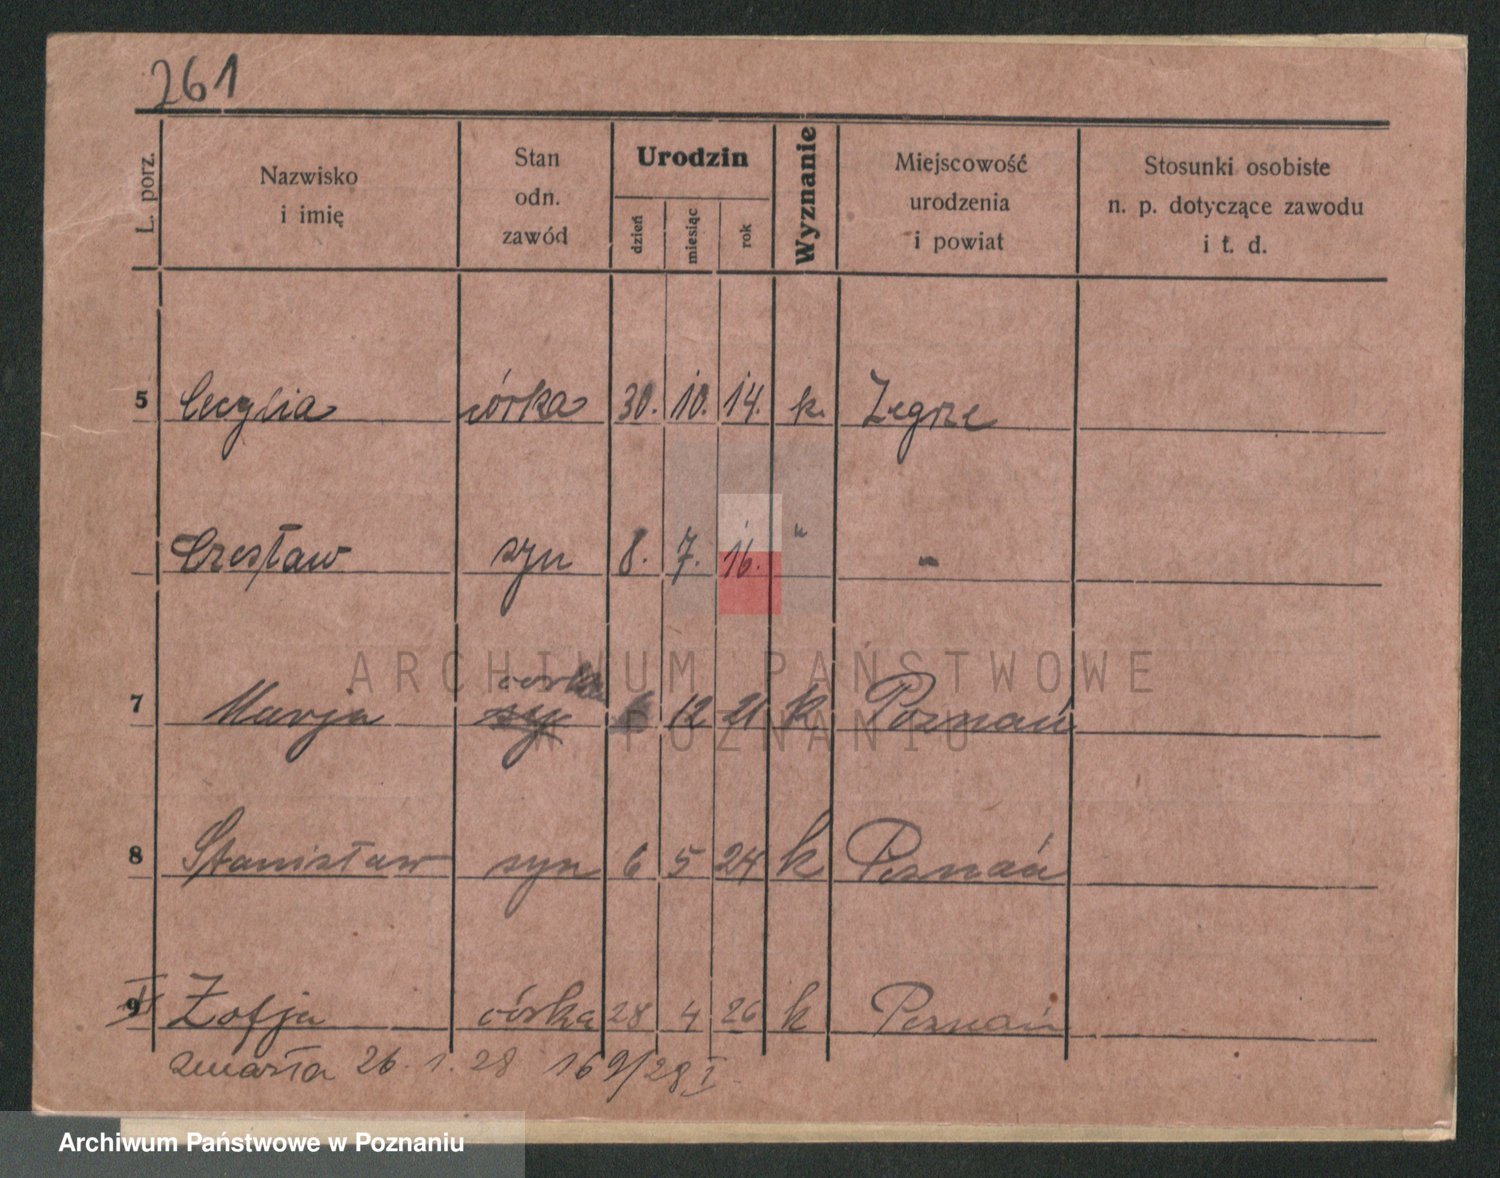 261
L. porz.
Nazwisko
i imię
Stan
odn.
zawód
Urodzin
dzień
miesiąc
rok
Wyznanie
Miejscowość
urodzenia
i powiat
Stosunki osobiste
n. p. dotyczące zawodu
i t. d.
5 Cecylia córka 30. 10. 14. k. Zegrze
Czesław syn 8. 7. 16. " -
córka
7 Marja sy 6 12 21 k Poznań
8 Stanisław syn 6 5 24 k Poznań
9 Zofja córka 28 4 26 k Poznań
zmarła 26. 1. 28 169/28 I
ARCHIWUM PAŃSTWOWE
W POZNANIU
Archiwum Państwowe w Poznaniu